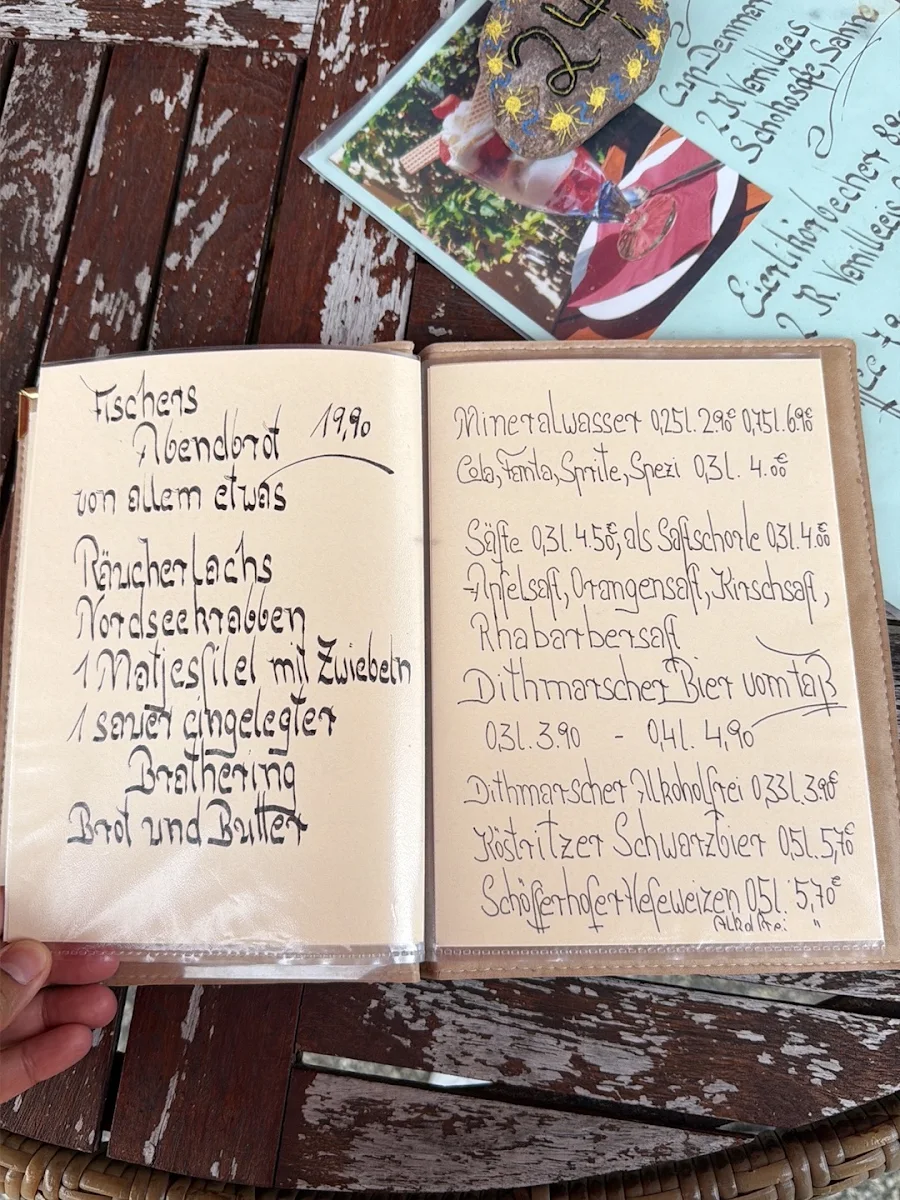 24
Cup Denmark
2 K. Vanilleeis
Schokosoße, Sahne
Eierlikörbecher
2 K. Vanilleeis
Fischers
Abendbrot 19,90
von allem etwas
Räucherlachs
Nordseekrabben
1 Matjesfilet mit Zwiebeln
1 sauer eingelegter
Brathering
Brot und Butter
Mineralwasser 0,25l. 2.90€ 0,75l. 6.90€
Cola, Fanta, Sprite, Spezi 0,3l. 4.00€
Säfte 0,3l. 4.50€, als Saftschorle 0,3l. 4.00€
Apfelsaft, Orangensaft, Kirschsaft,
Rhabarbersaft
Dithmarscher Bier vom Faß
0,3l. 3.90 - 0,4l. 4,90
Dithmarscher Alkoholfrei 0,33l. 3.90€
Köstritzer Schwarzbier 0,5l. 5,70€
Schöfferhofer Hefeweizen 0,5l. 5,70€
Alkolfrei "